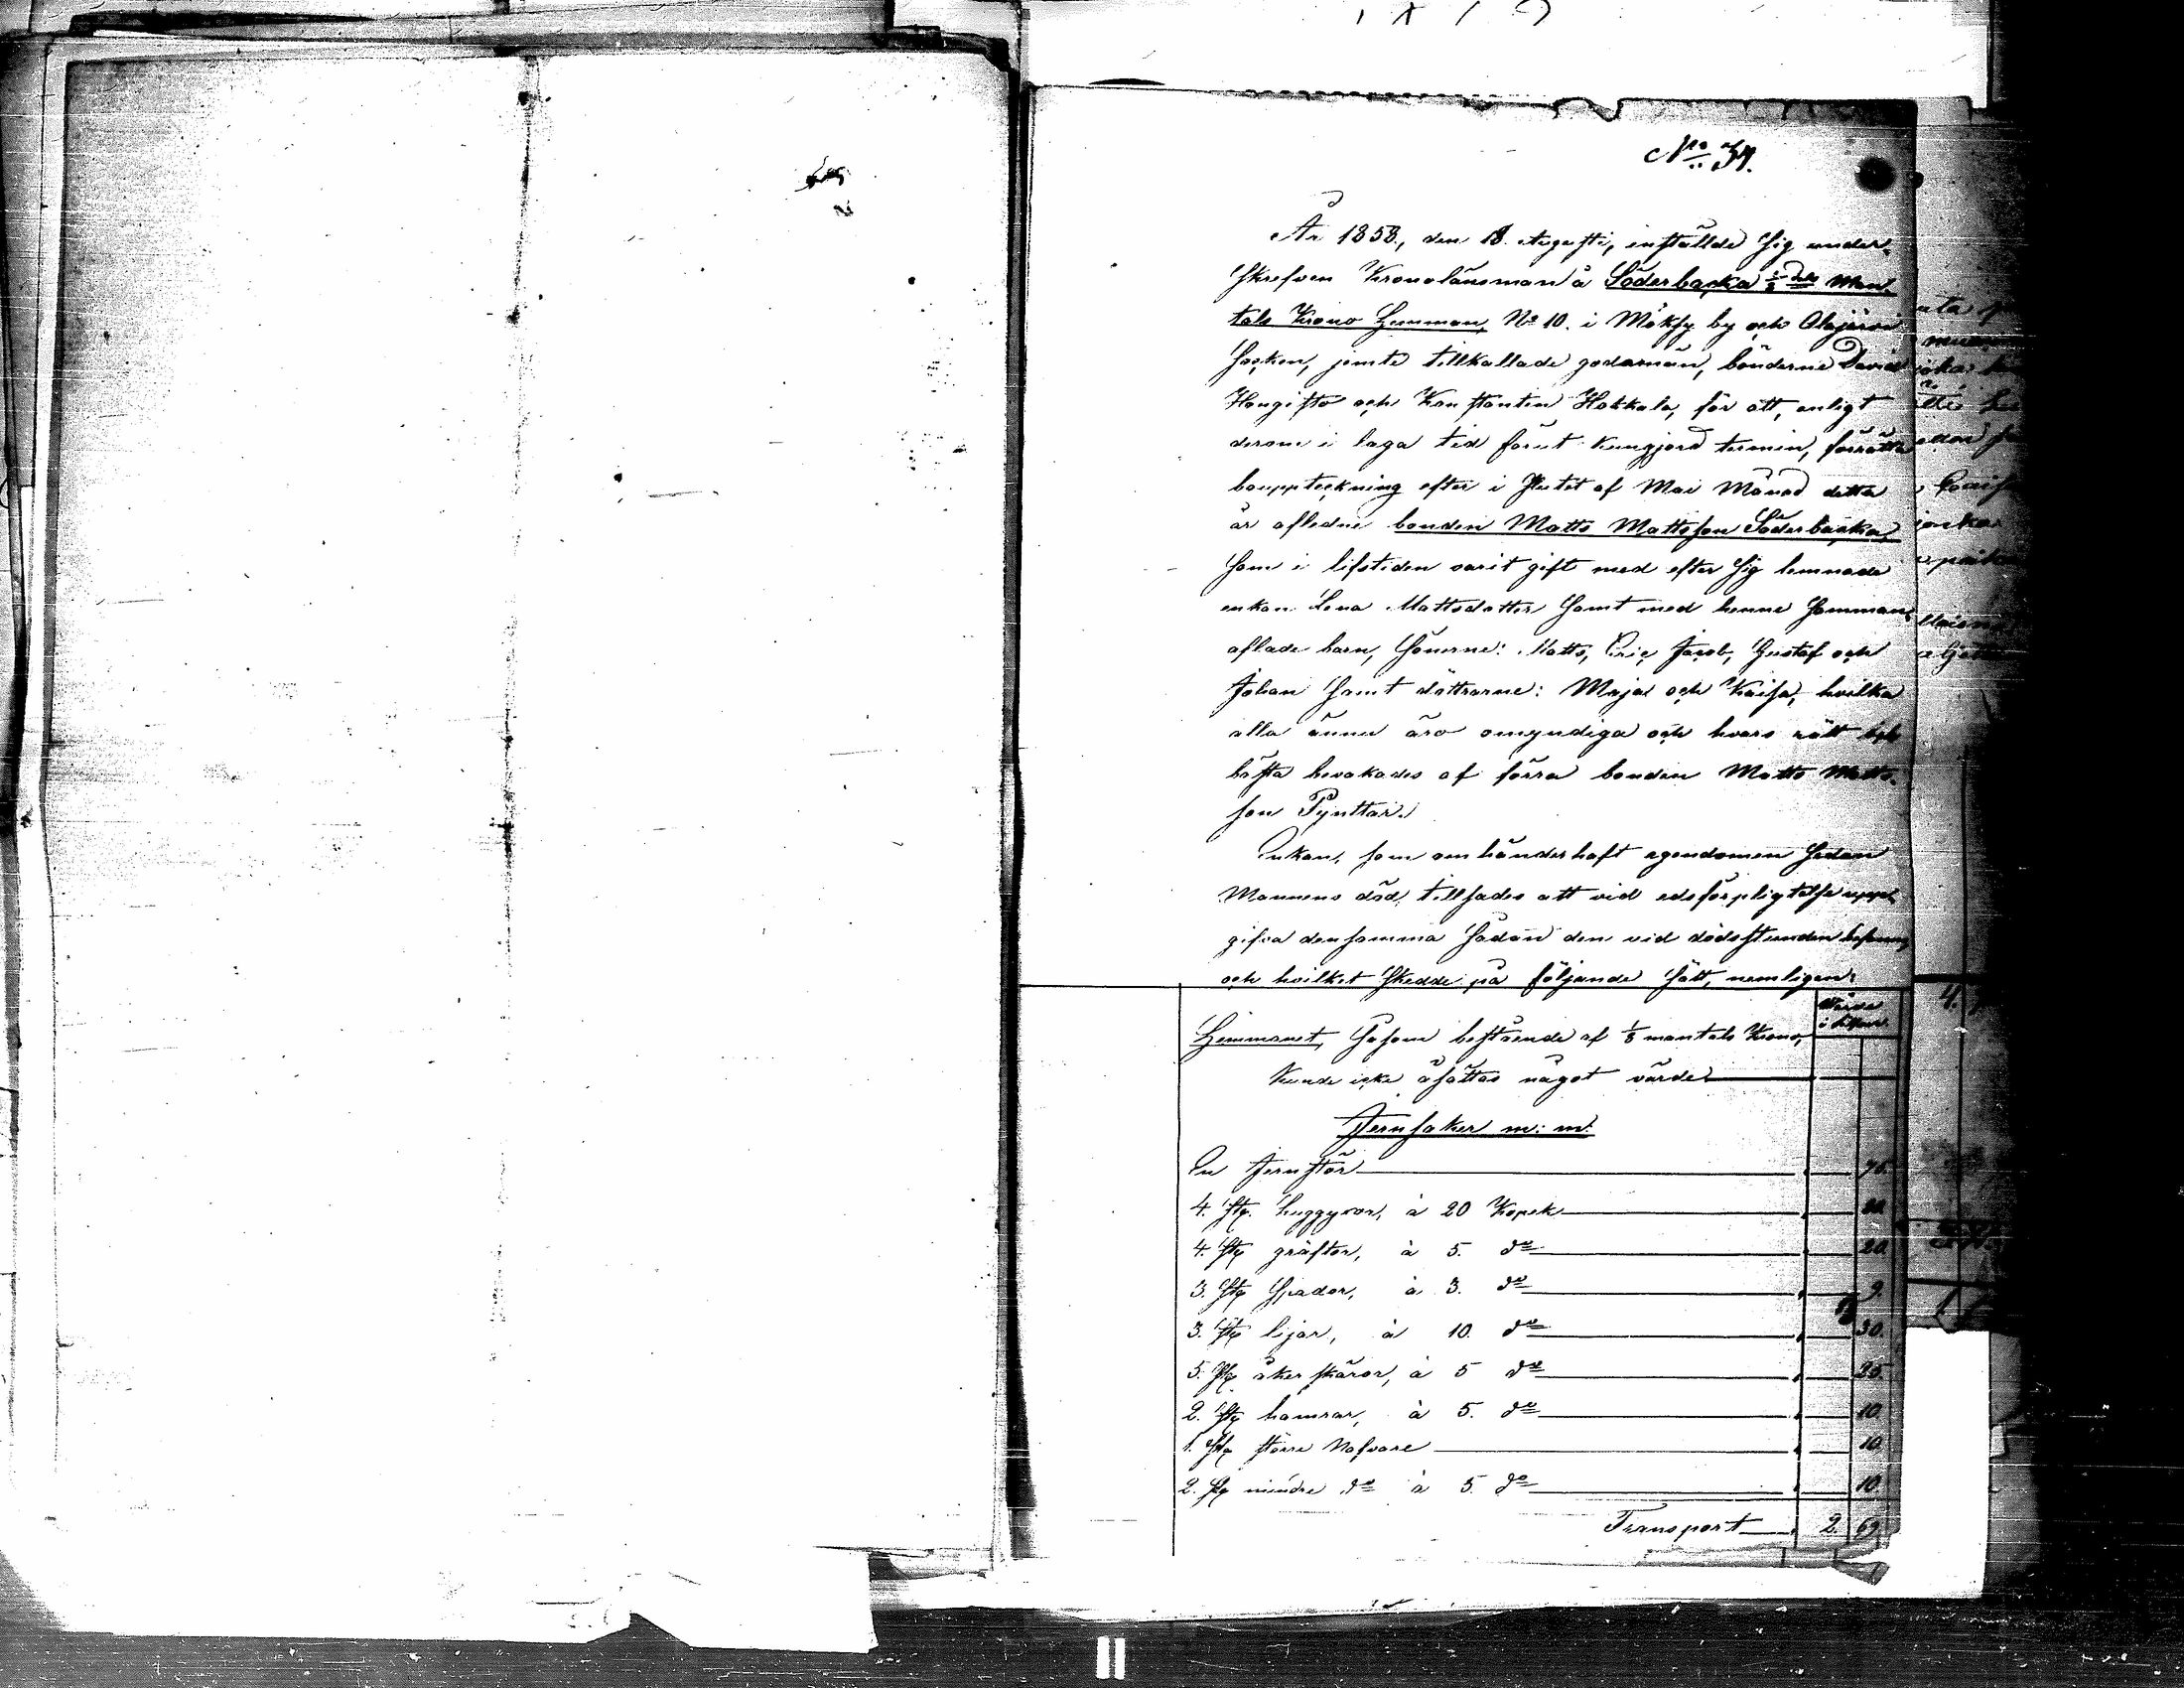 No 34.
År 1858, den 18. Augusti, inställde sig under-
skrefven Kronolänsman å Söderbacka 1/8 dels Man-
tals Krono Hemman, No 10. i Möksy by och Alajärvi
Socken, jemte tillkallade godemän, bönderne David
Hongisto och Konstantin Hokkala, för att, enligt
derom i laga tid förut kungjord termin, förrätta
bouppteckning efter i slutet af Mai Månad detta
år aflidne bonden Matts Mattsson Söderbacka,
som i lifstiden varit gift med efter sig lemnade
enkan Lena Mattsdotter samt med henne samman-
aflade barn, sönerne: Matts, Eric, Jacob, Gustaf och
Johan samt döttrarne: Maja och Kaisa, hvilka
alla ännu äro omyndiga och hvars rätt och
bästa bevakades af förra bonden Matts Matts-
son Pynttäri.
Enkan, som omhänderhaft egendomen sedan
Mannens död, tillsades att vid edsförpligtelse upp-
gifva densamma sådan den vid dödsstunden befanns
och hvilket skedde på följande sätt, nemligen:
Värde
i Silfver
Hemmanet, såsom bestående af 1/8 mantals Krono,
kunde icke åsättas något värde
Jernsaker m: m:
En Jernstör 75.
4. st. huggyxor, à 20 Kopek 80.
4. st gräftor, à 5. do 20.
3. st Spador, à 3. do 9.
3. st lijar, à 10. do 30.
5. st åkerskäror, à 5 do 25.
2. st hamrar, à 5. do 10.
1. st större Nafvare 10.
2. st mindre do à 5. do 10.
Transport 2. 69.